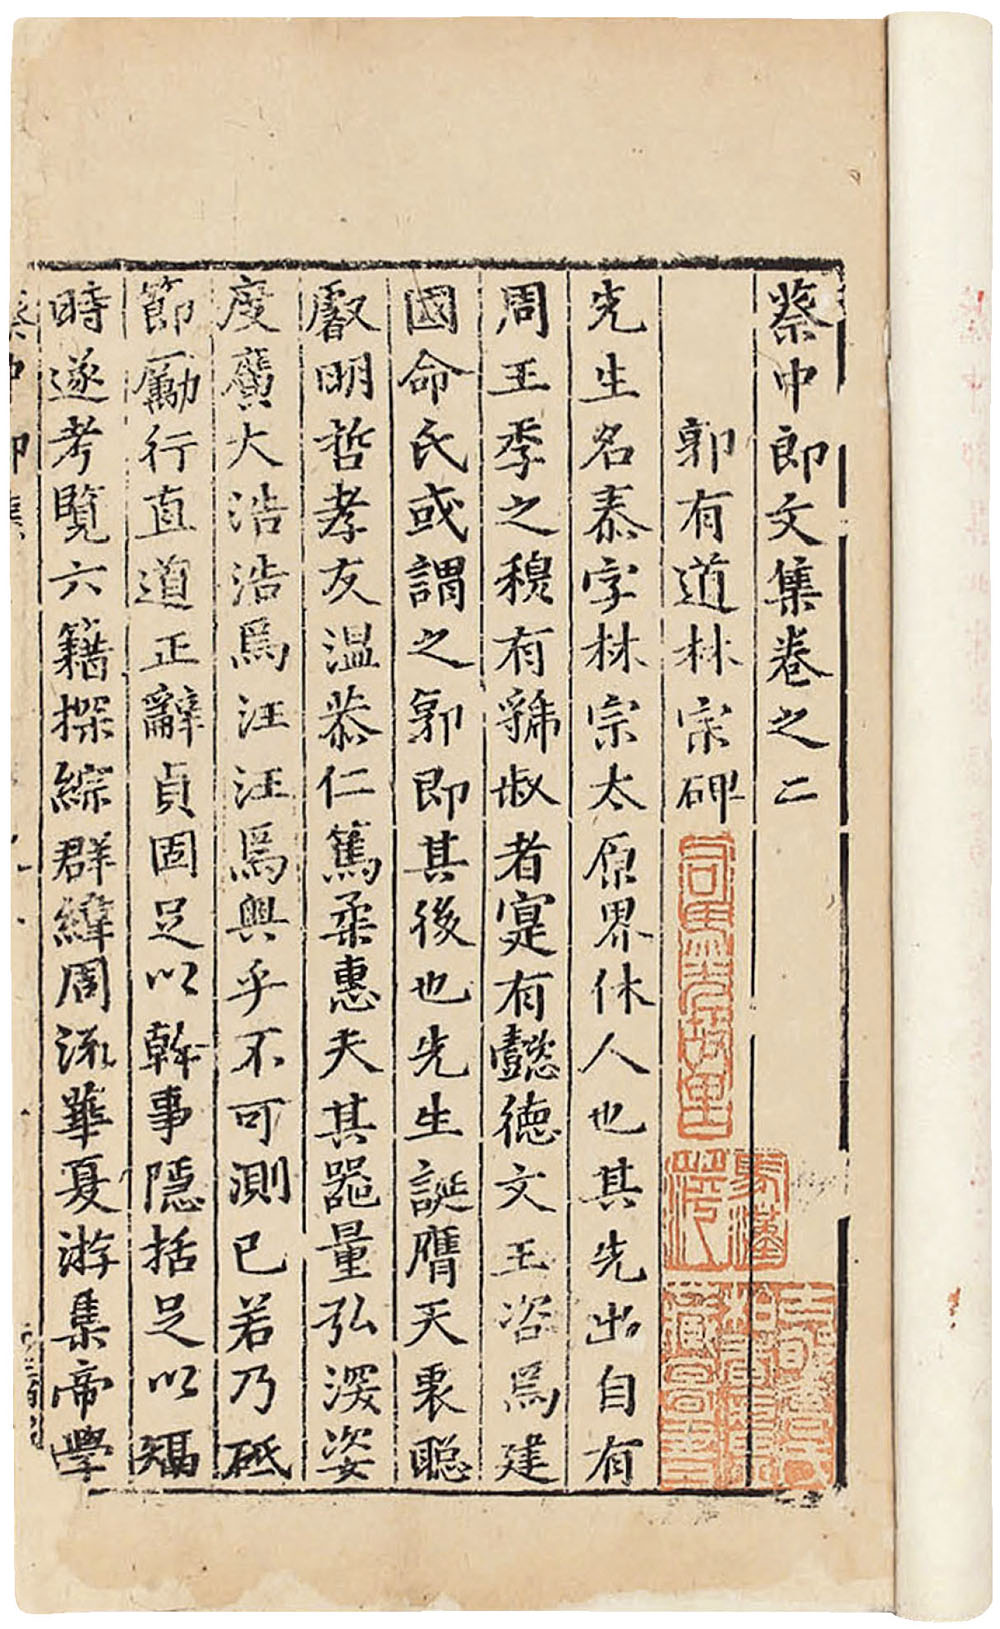 蔡中郎文集卷之二
郭有道林宗碑
先生名泰字林宗太原界休人也其先出自有
周王季之穆有虢叔者寔有懿德文王咨焉建
國命氏或謂之郭即其後也先生誕膺天衷聡
叡明哲孝友溫恭仁篤柔惠夫其器量弘深姿
度廣大浩浩焉汪汪焉奧乎不可測已若乃砥
節勵行直道正辭貞固足以幹事隱括足以矯
時遂考覽六籍探綜群緯周流華夏游集帝學